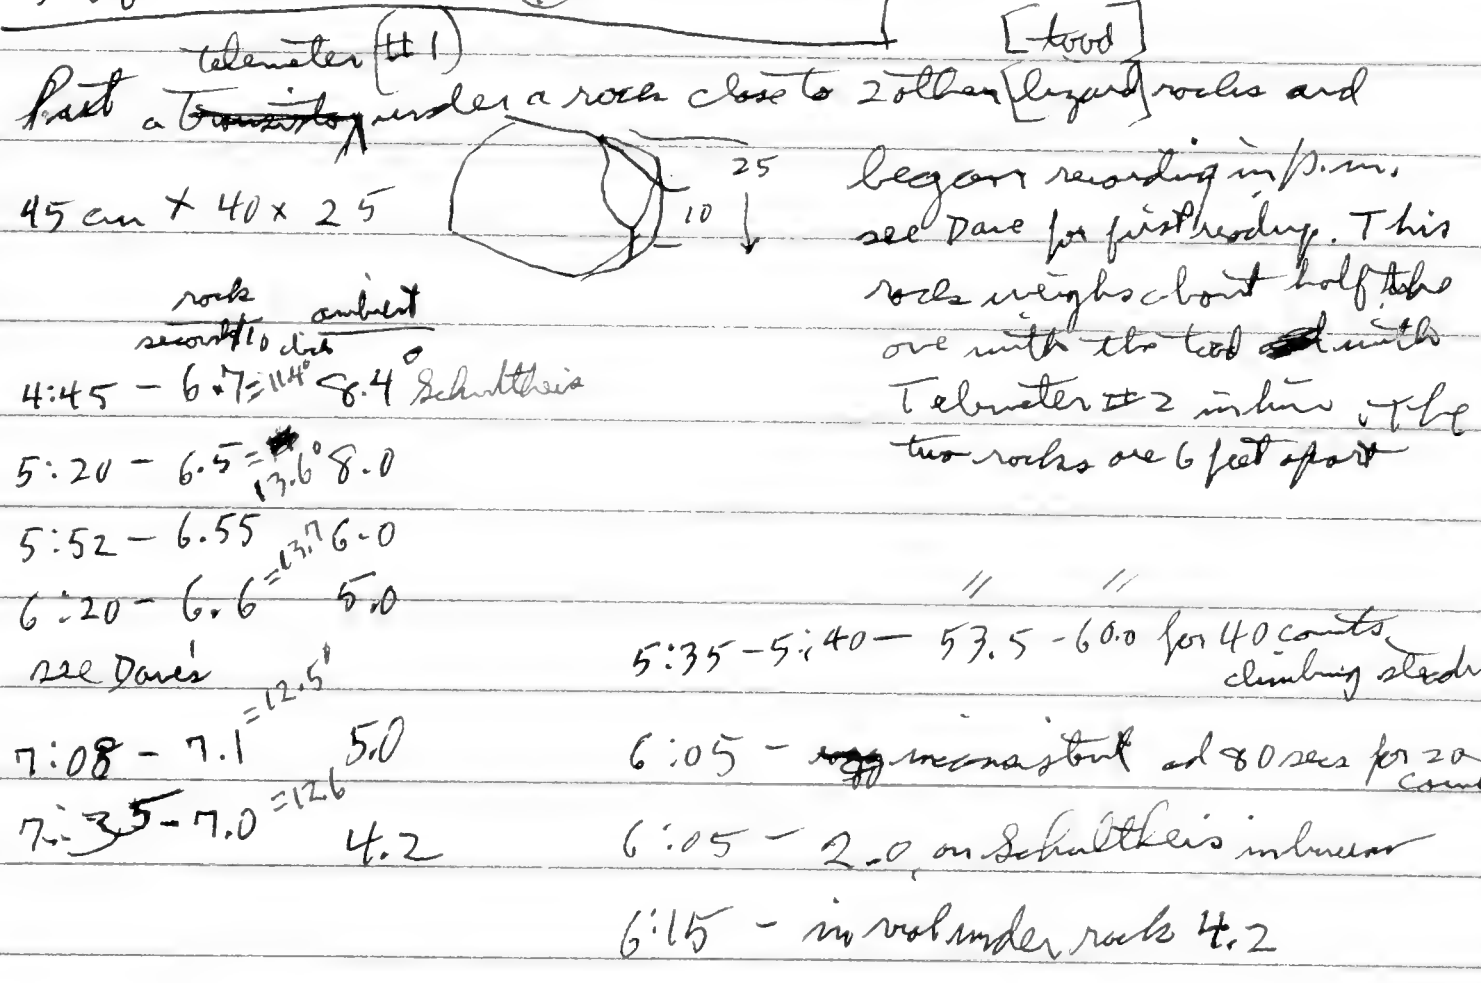 telemeter (#1)
[toad]
Put a under a rock close to 2 other [lizard] rocks and
25
10
45 cm × 40 × 25
began recording in p.m.
see Dave for first readings. This
rock weighs about half the
one with the toad with
Telemeter #2 in him. The
two rocks are 6 feet apart
rock ambient
seconds/10 clicks
4:45 - 6.7=11.4° 8.4° Schultheis
5:20 - 6.5= 13.6° 8.0
5:52 - 6.55 6.0
6:20 - 6.6 =13.7 5.0
see Dave's
7:08 - 7.1 =12.5° 5.0
7:35 - 7.0 =12.6 4.2
" "
5:35-5:40 - 53.5 - 60.0 for 40 counts,
climbing
6:05 - inconsistent and 80 secs for 20
6:05 - 2.0 on Schultheis in burrow
6:15 - in under rock 4.2